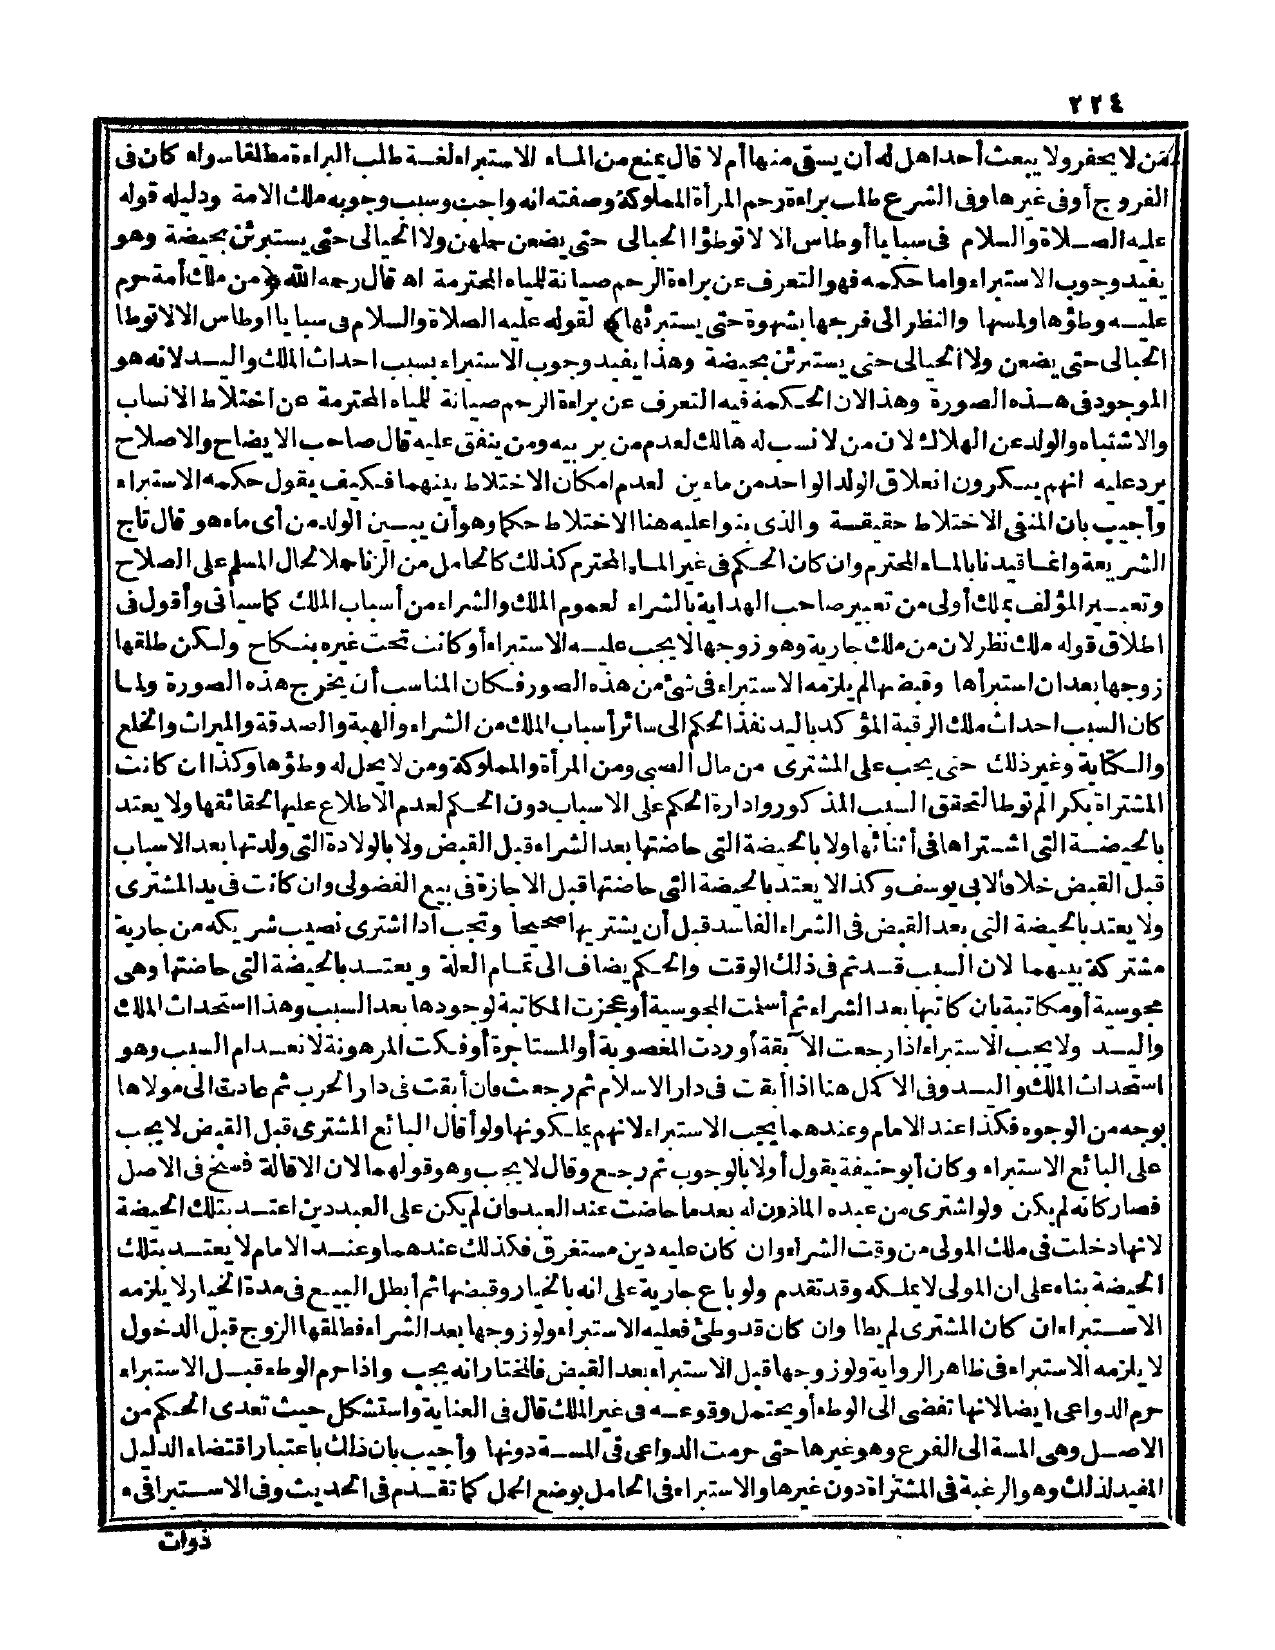 ٢٢٤
من لا يحفر ولا يبعث أحدا هل له أن يسقى منها أم لا قال يمنع من الماء الاستبراء لغة طلب البراءة مطلقا سواء كان فى
الفروج أو فى غيرها وفى الشرع طلب براءة رحم المرأة المملوكة وصفته انه واجب وسبب وجوبه ملك الامة ودليله قوله
عليه الصلاة والسلام فى سبايا أوطاس الا لا توطؤا الحبالى حتى يضعن حملهن ولا الحيالى حتى يستبرئن بحيضة وهو
يفيد وجوب الاستبراء واما حكمه فهو التعرف عن براءة الرحم صيانة للمياه المحترمة اه قال رحمه الله ﴿من ملك أمة حرم
عليه وطؤها ولمسها والنظر الى فرجها بشهوة حتى يستبرئها﴾ لقوله عليه الصلاة والسلام فى سبايا اوطاس الا لا توطا
الحبالى حتى يضعن ولا الحيالى حتى يستبرئن بحيضة وهذا يفيد وجوب الاستبراء بسبب احداث الملك واليد لانه هو
الموجود فى هذه الصورة وهذا لان الحكمة فيه التعرف عن براءة الرحم صيانة للمياه المحترمة عن اختلاط الانساب
والاشتباه والولد عن الهلاك لان من لا نسب له هالك لعدم من يربيه ومن ينفق عليه قال صاحب الايضاح والاصلاح
يرد عليه انهم ينكرون انعلاق الولد الواحد من ماءين لعدم امكان الاختلاط بينهما فكيف يقول حكمه الاستبراء
وأجيب بان المنفى الاختلاط حقيقة والذى بنوا عليه هنا الاختلاط حكما وهو أن يبين الولد من أى ماء هو قال تاج
الشريعة وانما قيدنا بالماء المحترم وان كان الحكم فى غير الماء المحترم كذلك كالحامل من الزنا حملا لحال المسلم على الصلاح
وتعبير المؤلف بملك أولى من تعبير صاحب الهداية بالشراء لعموم الملك والشراء من أسباب الملك كما سيأتى وأقول فى
اطلاق قوله ملك نظر لان من ملك جارية وهو زوجها لا يجب عليه الاستبراء أو كانت تحت غيره بنكاح ولكن طلقها
زوجها بعد ان استبرأها وقبضها لم يلزمه الاستبراء فى شئ من هذه الصور فكان المناسب أن يخرج هذه الصورة ولما
كان السبب احداث ملك الرقبة المؤكد باليد نفذ الحكم الى سائر أسباب الملك من الشراء والهبة والصدقة والميراث والخلع
والكتابة وغير ذلك حتى يجب على المشترى من مال الصبى ومن المرأة والمملوكة ومن لا يحل له وطؤها وكذا ان كانت
المشتراة بكرا لم توطا لتحقق السبب المذكور وادارة الحكم على الاسباب دون الحكم لعدم الاطلاع عليها لحقائقها ولا يعتد
بالحيضة التى اشتراها فى أثنائها ولا بالحيضة التى حاضتها بعد الشراء قبل القبض ولا بالولادة التى ولدتها بعد الاسباب
قبل القبض خلافا لابى يوسف وكذا لا يعتد بالحيضة التى حاضتها قبل الاجازة فى بيع الفضولى وان كانت فى يد المشترى
ولا يعتد بالحيضة التى بعد القبض فى الشراء الفاسد قبل أن يشتريها صحيحا وتجب اذا اشترى نصيب شريكه من جارية
مشتركة بينهما لان السبب قد تم فى ذلك الوقت والحكم يضاف الى تمام العلة ويعتد بالحيضة التى حاضتها وهى
مجوسية أو مكاتبة بان كاتبها بعد الشراء ثم أسلمت المجوسية أو عجزت المكاتبة لوجودها بعد السبب وهذا استحداث الملك
واليد ولا يجب الاستبراء اذا رجعت الآبقة أو ردت المغصوبة أو المستاجرة أو فكت المرهونة لانعدام السبب وهو
استحداث الملك واليد وفى الاكمل هنا اذا أبقت فى دار الاسلام ثم رجعت فان أبقت فى دار الحرب ثم عادت الى مولاها
بوجه من الوجوه فكذا عند الامام وعندهما يجب الاستبراء لانهم يملكونها ولو أقال البائع المشترى قبل القبض لا يجب
على البائع الاستبراء وكان أبو حنيفة يقول أولا بالوجوب ثم رجع وقال لا يجب وهو قولهما لان الاقالة فسخ فى الاصل
فصار كانه لم يكن ولو اشترى من عبده الماذون له بعد ما حاضت عند العبد فان لم يكن على العبد دين اعتد بتلك الحيضة
لانها دخلت فى ملك المولى من وقت الشراء وان كان عليه دين مستغرق فكذلك عندهما وعند الامام لا يعتد بتلك
الحيضة بناء على ان المولى لا يملكه وقد تقدم ولو باع جارية على انه بالخيار وقبضها ثم أبطل البيع فى مدة الخيار لا يلزمه
الاستبراء ان كان المشترى لم يطا وان كان قد وطئ فعليه الاستبراء ولو زوجها بعد الشراء فطلقها الزوج قبل الدخول
لا يلزمه الاستبراء فى ظاهر الرواية ولو زوجها قبل الاستبراء بعد القبض فالمختار انه يجب واذا حرم الوطء قبل الاستبراء
حرم الدواعى ايضا لانها تفضى الى الوطء أو يحتمل وقوعه فى غير الملك قال فى العناية واستشكل حيث تعدى الحكم من
الاصل وهى المسة الى الفرع وهو غيرها حتى حرمت الدواعى فى المسة دونها وأجيب بان ذلك باعتبار اقتضاء الدليل
المفيد لذلك وهو الرغبة فى المشتراة دون غيرها والاستبراء فى الحامل بوضع الحمل كما تقدم فى الحديث وفى الاستبراء فى
ذوات